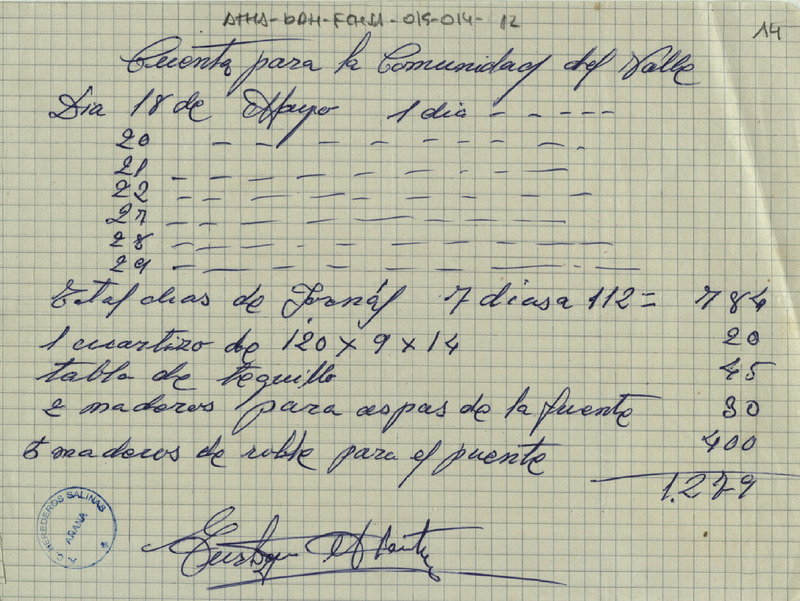 ATHA-DAH-FCHSA-015-014-12
14
Cuenta para la Comunidad del Valle
Dia 18 de Mayo 1 dia - - - - -
20 - - - - - - - -
21 - - - - - - - -
22 - - - - - - - -
27 - - - - - - - -
28 - - - - - - - -
29 - - - - - - - -
Total dias de Jornál 7 dias a 112 = 784
1 cuartizo de 120 x 9 x 14 20
tabla de teguillo 45
2 maderos para aspas de la fuente 30
5 maderos de roble para el puente 400
1.279
HEREDEROS SALINAS
AÑANA